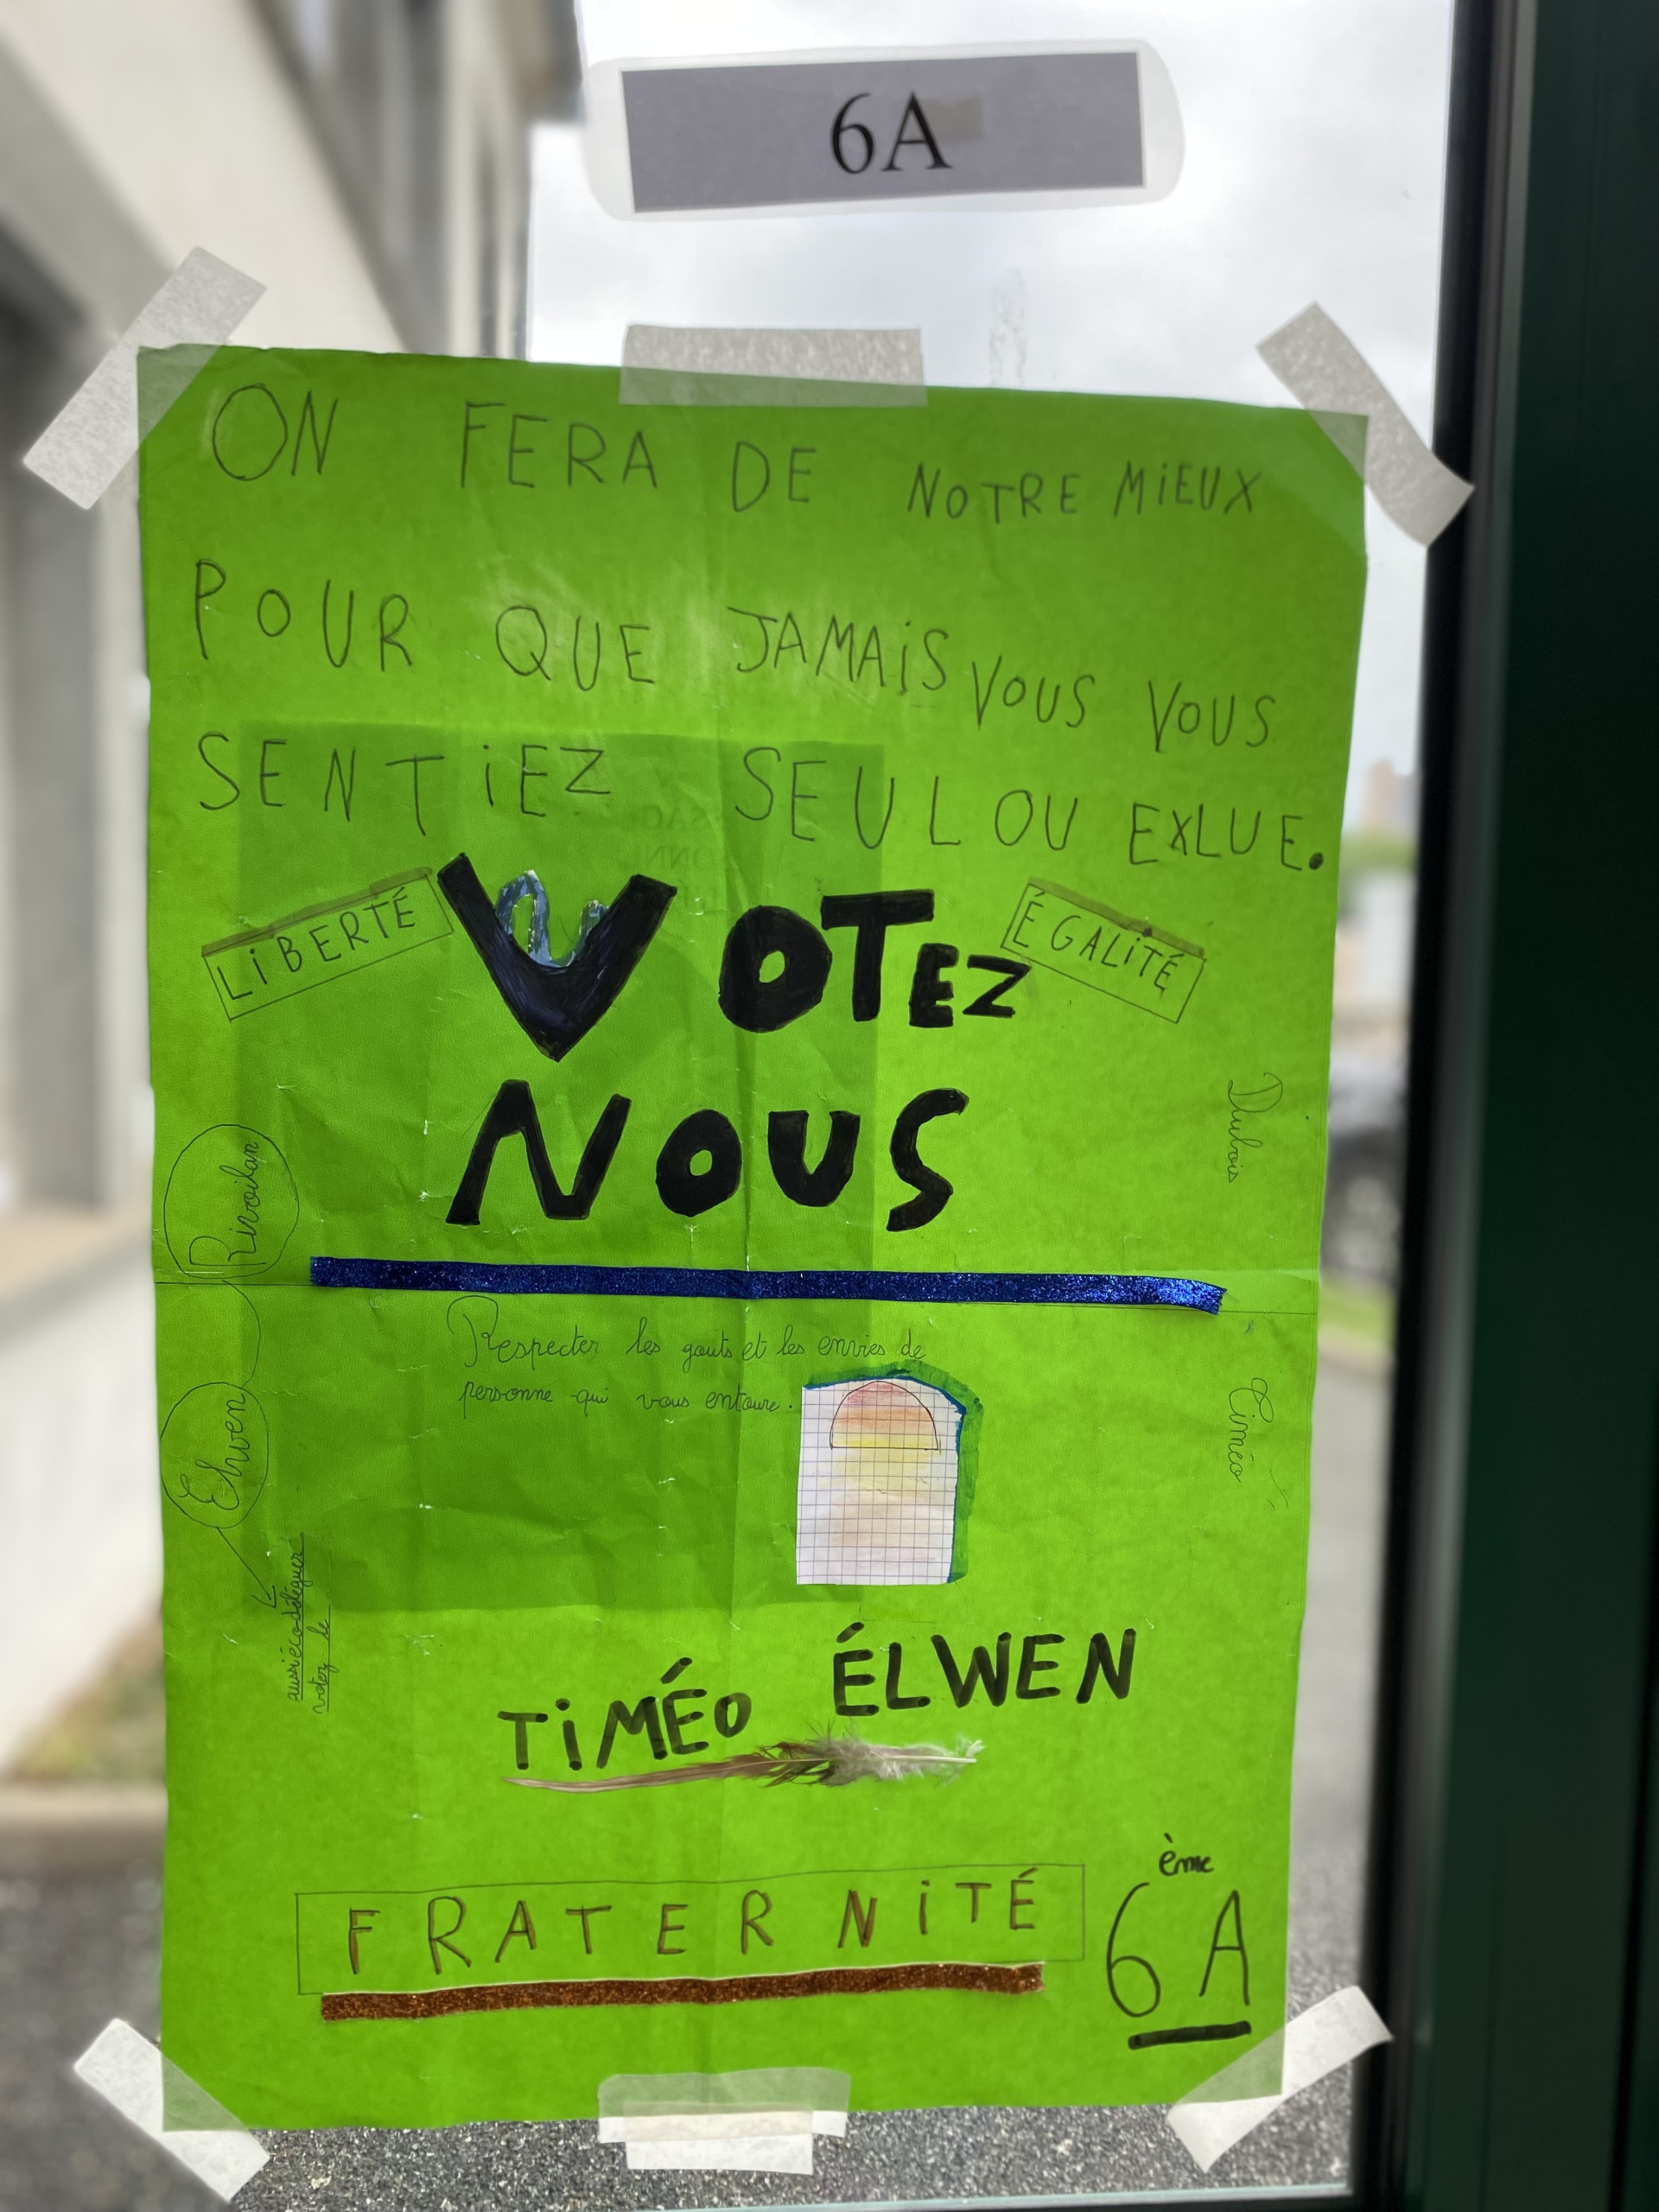 6A
ON FERA DE NOTRE MiEUX
POUR QUE JAMAiS VOUS VOUS
SENTiEZ SEUL OU EXLUE.
LiBERTÉ
VOTEZ
ÉGALiTÉ
NOUS
Dubois
Rivoilan
Respecter les gouts et les envies de
personne qui vous entoure.
Timéo
Elwen
aussi écodéléguer
votez le
TiMÉO ÉLWEN
FRATERNiTÉ
6ème A